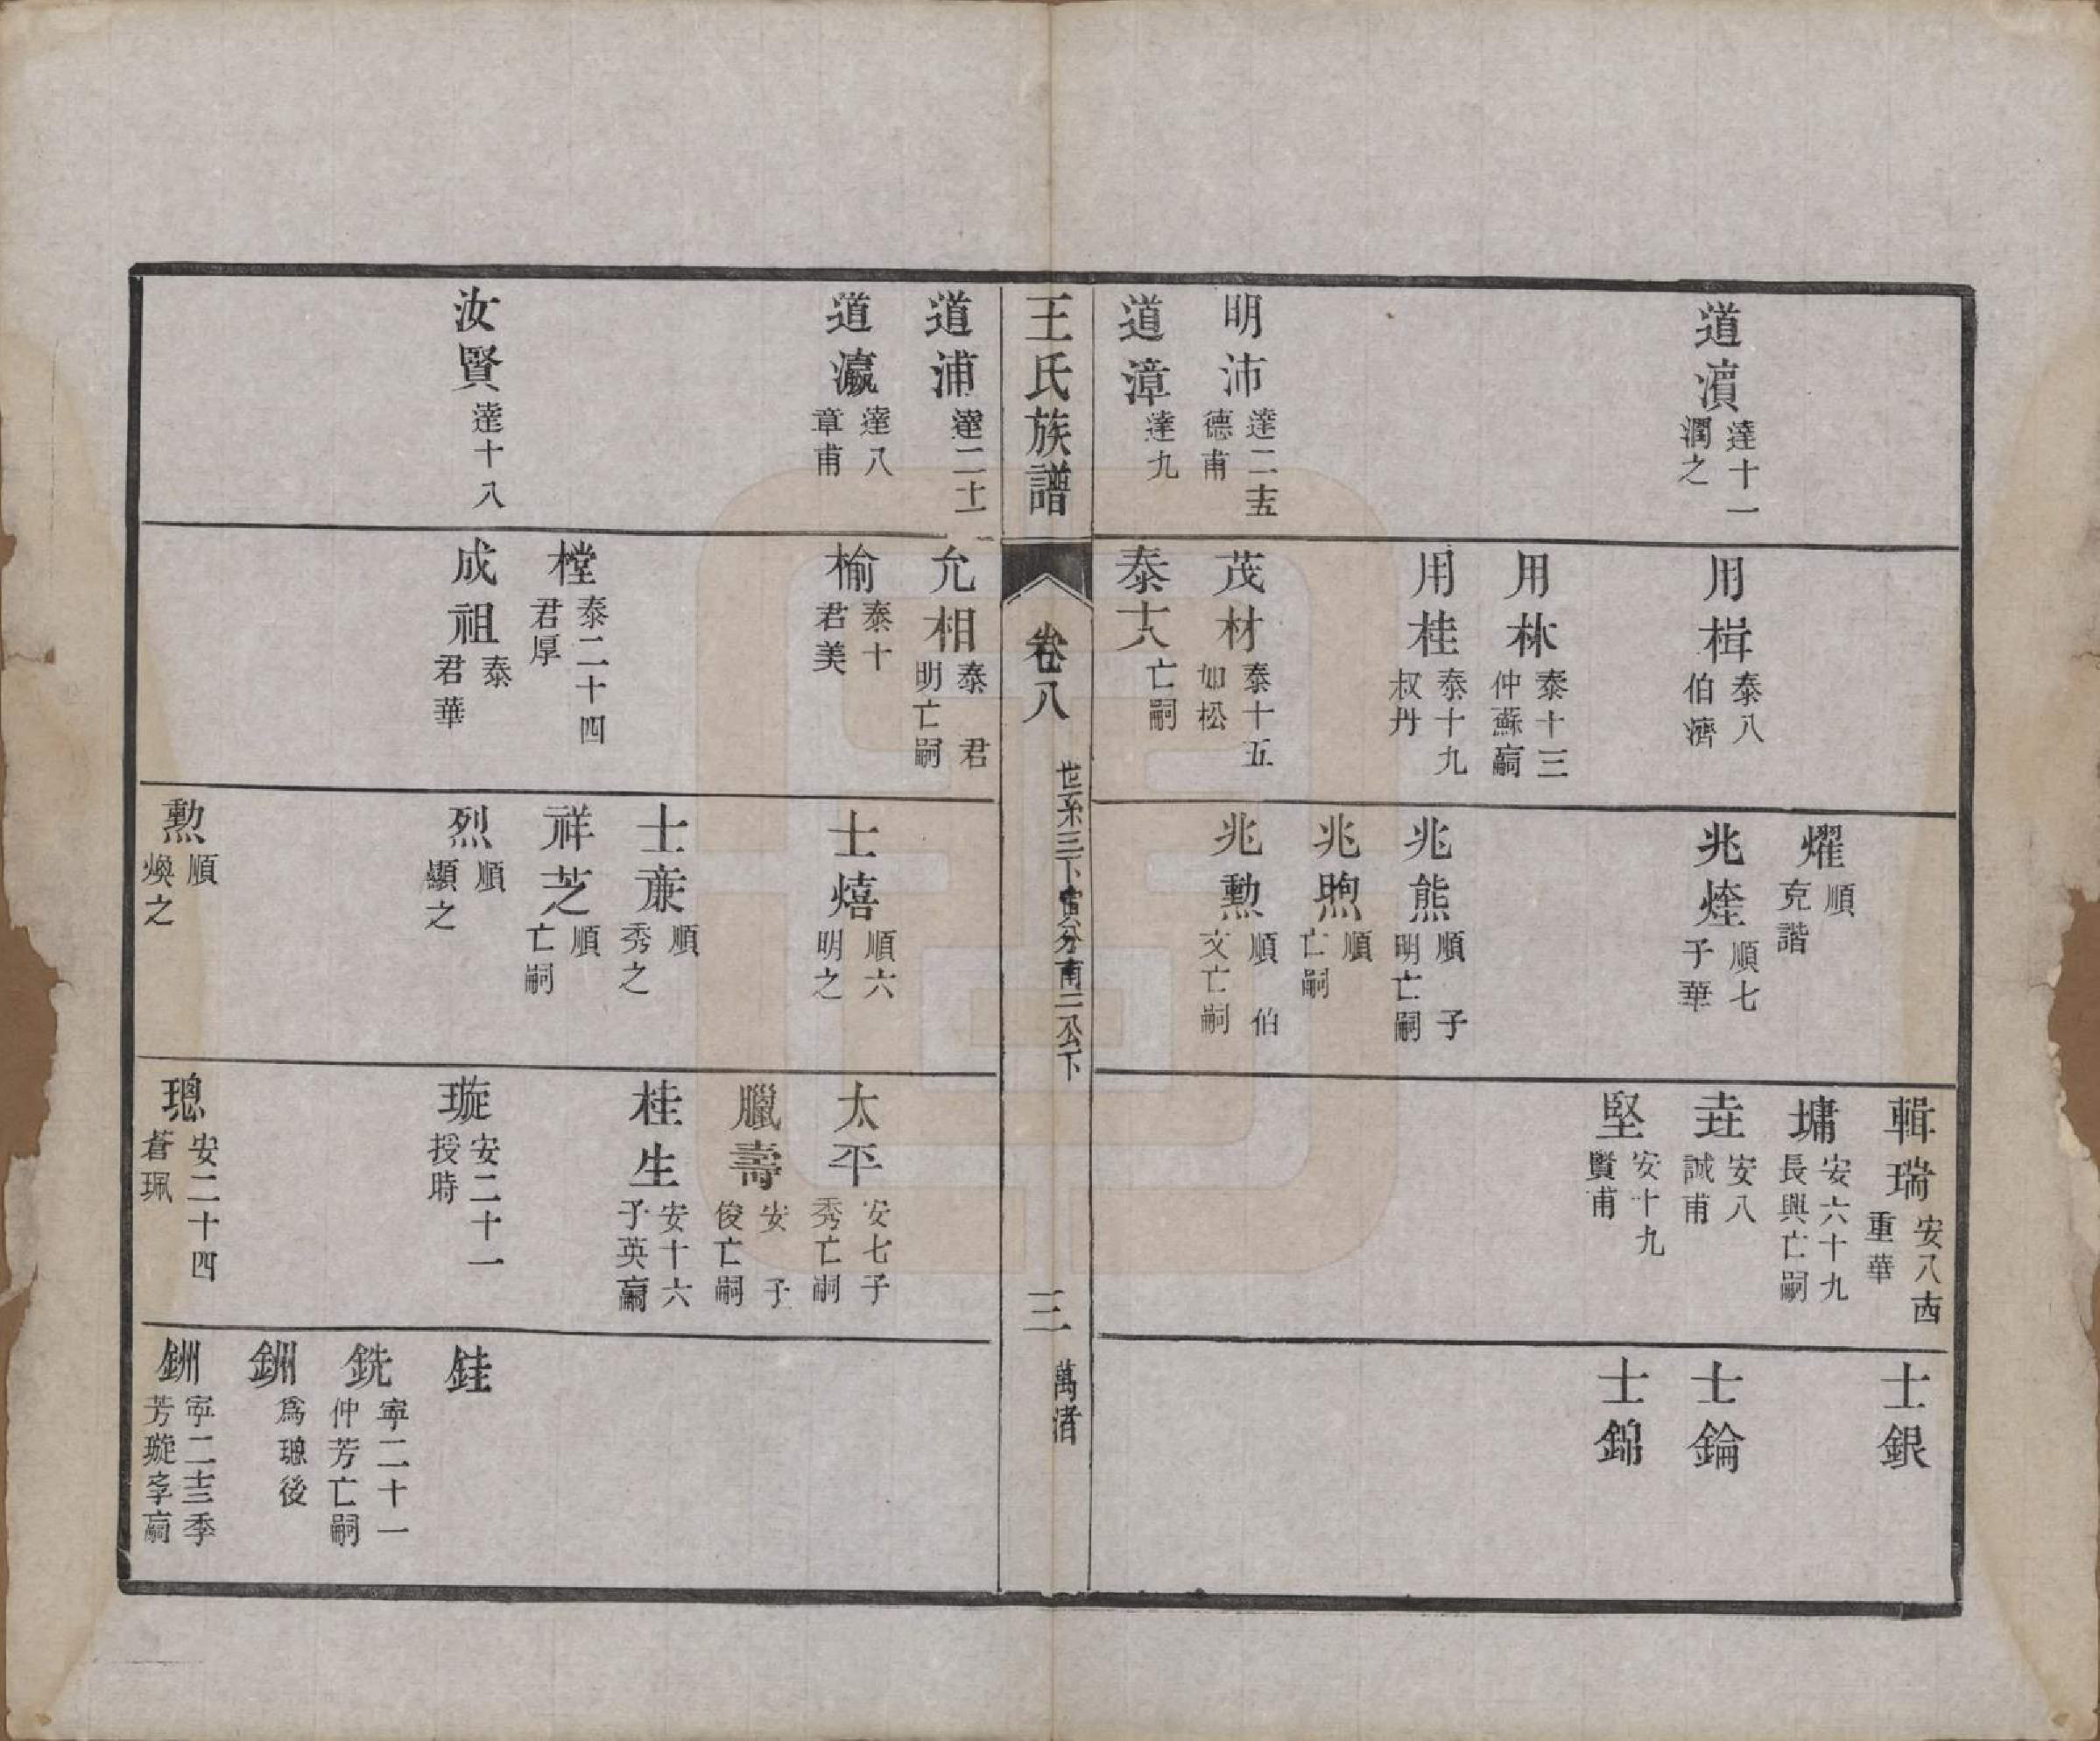 道濆 達十一 潤之
明沛 達二十五 德甫
道漳 達九
用楫 泰八 伯濟
用林 泰十三 仲蘇 亡嗣
用桂 泰十九 叔丹
茂材 泰十五 如松
泰十八 亡嗣
燿 順 克諧
兆煃 順七 子華
兆熊 順 子明 亡嗣
兆煦 順 亡嗣
兆勲 順 伯文 亡嗣
輯瑞 安八十四 重華
墉 安六十九 長興 亡嗣
垚 安八 誠甫
堅 安十九 賢甫
士銀
士錀
士錦
王氏族譜
卷八
世系三下 分南二公下
三
萬渚
道浦 達二十二
道瀛 達八 章甫
汝賢 達十八
允相 泰 君明 亡嗣
榆 泰十 君美
樘 泰二十四 君厚
成祖 泰 君華
士熺 順六 明之
士𤋮 順 秀之
祥芝 順 亡嗣
烈 順 顯之
勲 順 煥之
太平 安七 子秀 亡嗣
臘壽 安 子俊 亡嗣
桂生 安十六 子英 亡嗣
璇 安二十一 授時
璁 安二十四 蒼珮
銈
銑 寧二十一 仲芳 亡嗣
銂 爲璁後
銂 寧二十三 季芳 璇季 亡嗣